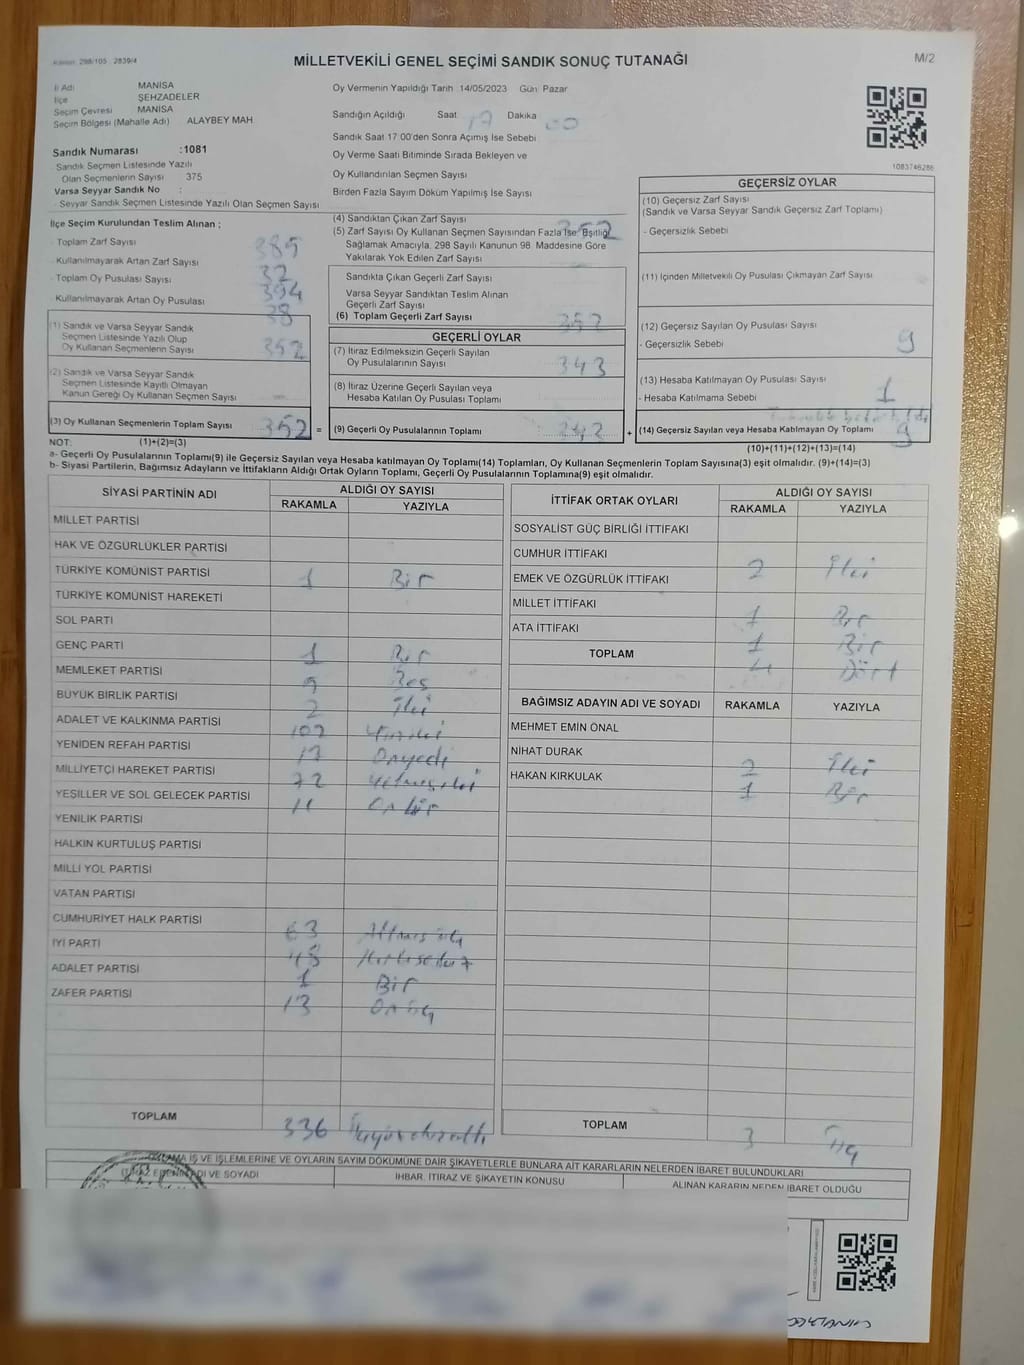 Kanun: 298/105 2839/4
MİLLETVEKİLİ GENEL SEÇİMİ SANDIK SONUÇ TUTANAĞI
M/2
İl Adı MANİSA
İlçe ŞEHZADELER
Seçim Çevresi MANİSA
Seçim Bölgesi (Mahalle Adı) ALAYBEY MAH
Sandık Numarası :1081
Sandık Seçmen Listesinde Yazılı
Olan Seçmenlerin Sayısı 375
Varsa Seyyar Sandık No :
Seyyar Sandık Seçmen Listesinde Yazılı Olan Seçmen Sayısı
Oy Vermenin Yapıldığı Tarih 14/05/2023 Gün Pazar
Sandığın Açıldığı Saat 17 Dakika 00
Sandık Saat 17:00'den Sonra Açımış İse Sebebi
Oy Verme Saati Bitiminde Sırada Bekleyen ve
Oy Kullandırılan Seçmen Sayısı
Birden Fazla Sayım Döküm Yapılmış İse Sayısı
1083746286
İlçe Seçim Kurulundan Teslim Alınan ;
Toplam Zarf Sayısı 385
Kullanılmayarak Artan Zarf Sayısı 32
Toplam Oy Pusulası Sayısı 394
Kullanılmayarak Artan Oy Pusulası 38
(1) Sandık ve Varsa Seyyar Sandık
Seçmen Listesinde Yazılı Olup
Oy Kullanan Seçmenlerin Sayısı 352
(2) Sandık ve Varsa Seyyar Sandık
Seçmen Listesinde Kayıtlı Olmayan
Kanun Gereği Oy Kullanan Seçmen Sayısı
(3) Oy Kullanan Seçmenlerin Toplam Sayısı 352 =
(4) Sandıktan Çıkan Zarf Sayısı 352
(5) Zarf Sayısı Oy Kullanan Seçmen Sayısından Fazla İse, Eşitliği
Sağlamak Amacıyla, 298 Sayılı Kanunun 98. Maddesine Göre
Yakılarak Yok Edilen Zarf Sayısı
Sandıkta Çıkan Geçerli Zarf Sayısı
Varsa Seyyar Sandıktan Teslim Alınan
Geçerli Zarf Sayısı
(6) Toplam Geçerli Zarf Sayısı 352
GEÇERLİ OYLAR
(7) İtiraz Edilmeksizin Geçerli Sayılan
Oy Pusulalarının Sayısı 343
(8) İtiraz Üzerine Geçerli Sayılan veya
Hesaba Katılan Oy Pusulası Toplamı
(9) Geçerli Oy Pusulalarının Toplamı 343 +
GEÇERSİZ OYLAR
(10) Geçersiz Zarf Sayısı
(Sandık ve Varsa Seyyar Sandık Geçersiz Zarf Toplamı)
- Geçersizlik Sebebi
(11) İçinden Milletvekili Oy Pusulası Çıkmayan Zarf Sayısı
(12) Geçersiz Sayılan Oy Pusulası Sayısı
- Geçersizlik Sebebi 9
(13) Hesaba Katılmayan Oy Pusulası Sayısı
- Hesaba Katılmama Sebebi 1
(14) Geçersiz Sayılan veya Hesaba Katılmayan Oy Toplamı 9
NOT: (1)+(2)=(3)
(10)+(11)+(12)+(13)=(14)
a- Geçerli Oy Pusulalarının Toplamı(9) ile Geçersiz Sayılan veya Hesaba katılmayan Oy Toplamı(14) Toplamları, Oy Kullanan Seçmenlerin Toplam Sayısına(3) eşit olmalıdır. (9)+(14)=(3)
b- Siyasi Partilerin, Bağımsız Adayların ve İttifakların Aldığı Ortak Oyların Toplamı, Geçerli Oy Pusulalarının Toplamına(9) eşit olmalıdır.
SİYASİ PARTİNİN ADI ALDIĞI OY SAYISI
RAKAMLA YAZIYLA
MİLLET PARTİSİ
HAK VE ÖZGÜRLÜKLER PARTİSİ
TÜRKİYE KOMÜNİST PARTİSİ 1 Bir
TÜRKİYE KOMÜNİST HAREKETİ
SOL PARTİ
GENÇ PARTİ 1 Bir
MEMLEKET PARTİSİ Beş
BÜYÜK BİRLİK PARTİSİ 2 İki
ADALET VE KALKINMA PARTİSİ 102 Yüziki
YENİDEN REFAH PARTİSİ 17 Onyedi
MİLLİYETÇİ HAREKET PARTİSİ 72 Yetmişiki
YEŞİLLER VE SOL GELECEK PARTİSİ 11 Onbir
YENİLİK PARTİSİ
HALKIN KURTULUŞ PARTİSİ
MİLLİ YOL PARTİSİ
VATAN PARTİSİ
CUMHURİYET HALK PARTİSİ 63 Altmışüç
İYİ PARTİ 48 Kırksekiz
ADALET PARTİSİ 1 Bir
ZAFER PARTİSİ 13 Onüç
TOPLAM 336 Üçyüzotuzaltı
İTTİFAK ORTAK OYLARI ALDIĞI OY SAYISI
RAKAMLA YAZIYLA
SOSYALİST GÜÇ BİRLİĞİ İTTİFAKI
CUMHUR İTTİFAKI 2 İki
EMEK VE ÖZGÜRLÜK İTTİFAKI
MİLLET İTTİFAKI 1 Bir
ATA İTTİFAKI 1 Bir
TOPLAM 4 Dört
BAĞIMSIZ ADAYIN ADI VE SOYADI RAKAMLA YAZIYLA
MEHMET EMİN ÖNAL
NİHAT DURAK 2 İki
HAKAN KIRKULAK 1 Bir
TOPLAM 3 Üç
İŞ VE İŞLEMLERİNE VE OYLARIN SAYIM DÖKÜMÜNE DAİR ŞİKAYETLERLE BUNLARA AİT KARARLARIN NELERDEN İBARET BULUNDUKLARI
İTİRAZ EDENİN ADI VE SOYADI İHBAR, İTİRAZ VE ŞİKAYETİN KONUSU ALINAN KARARIN NEDEN İBARET OLDUĞU